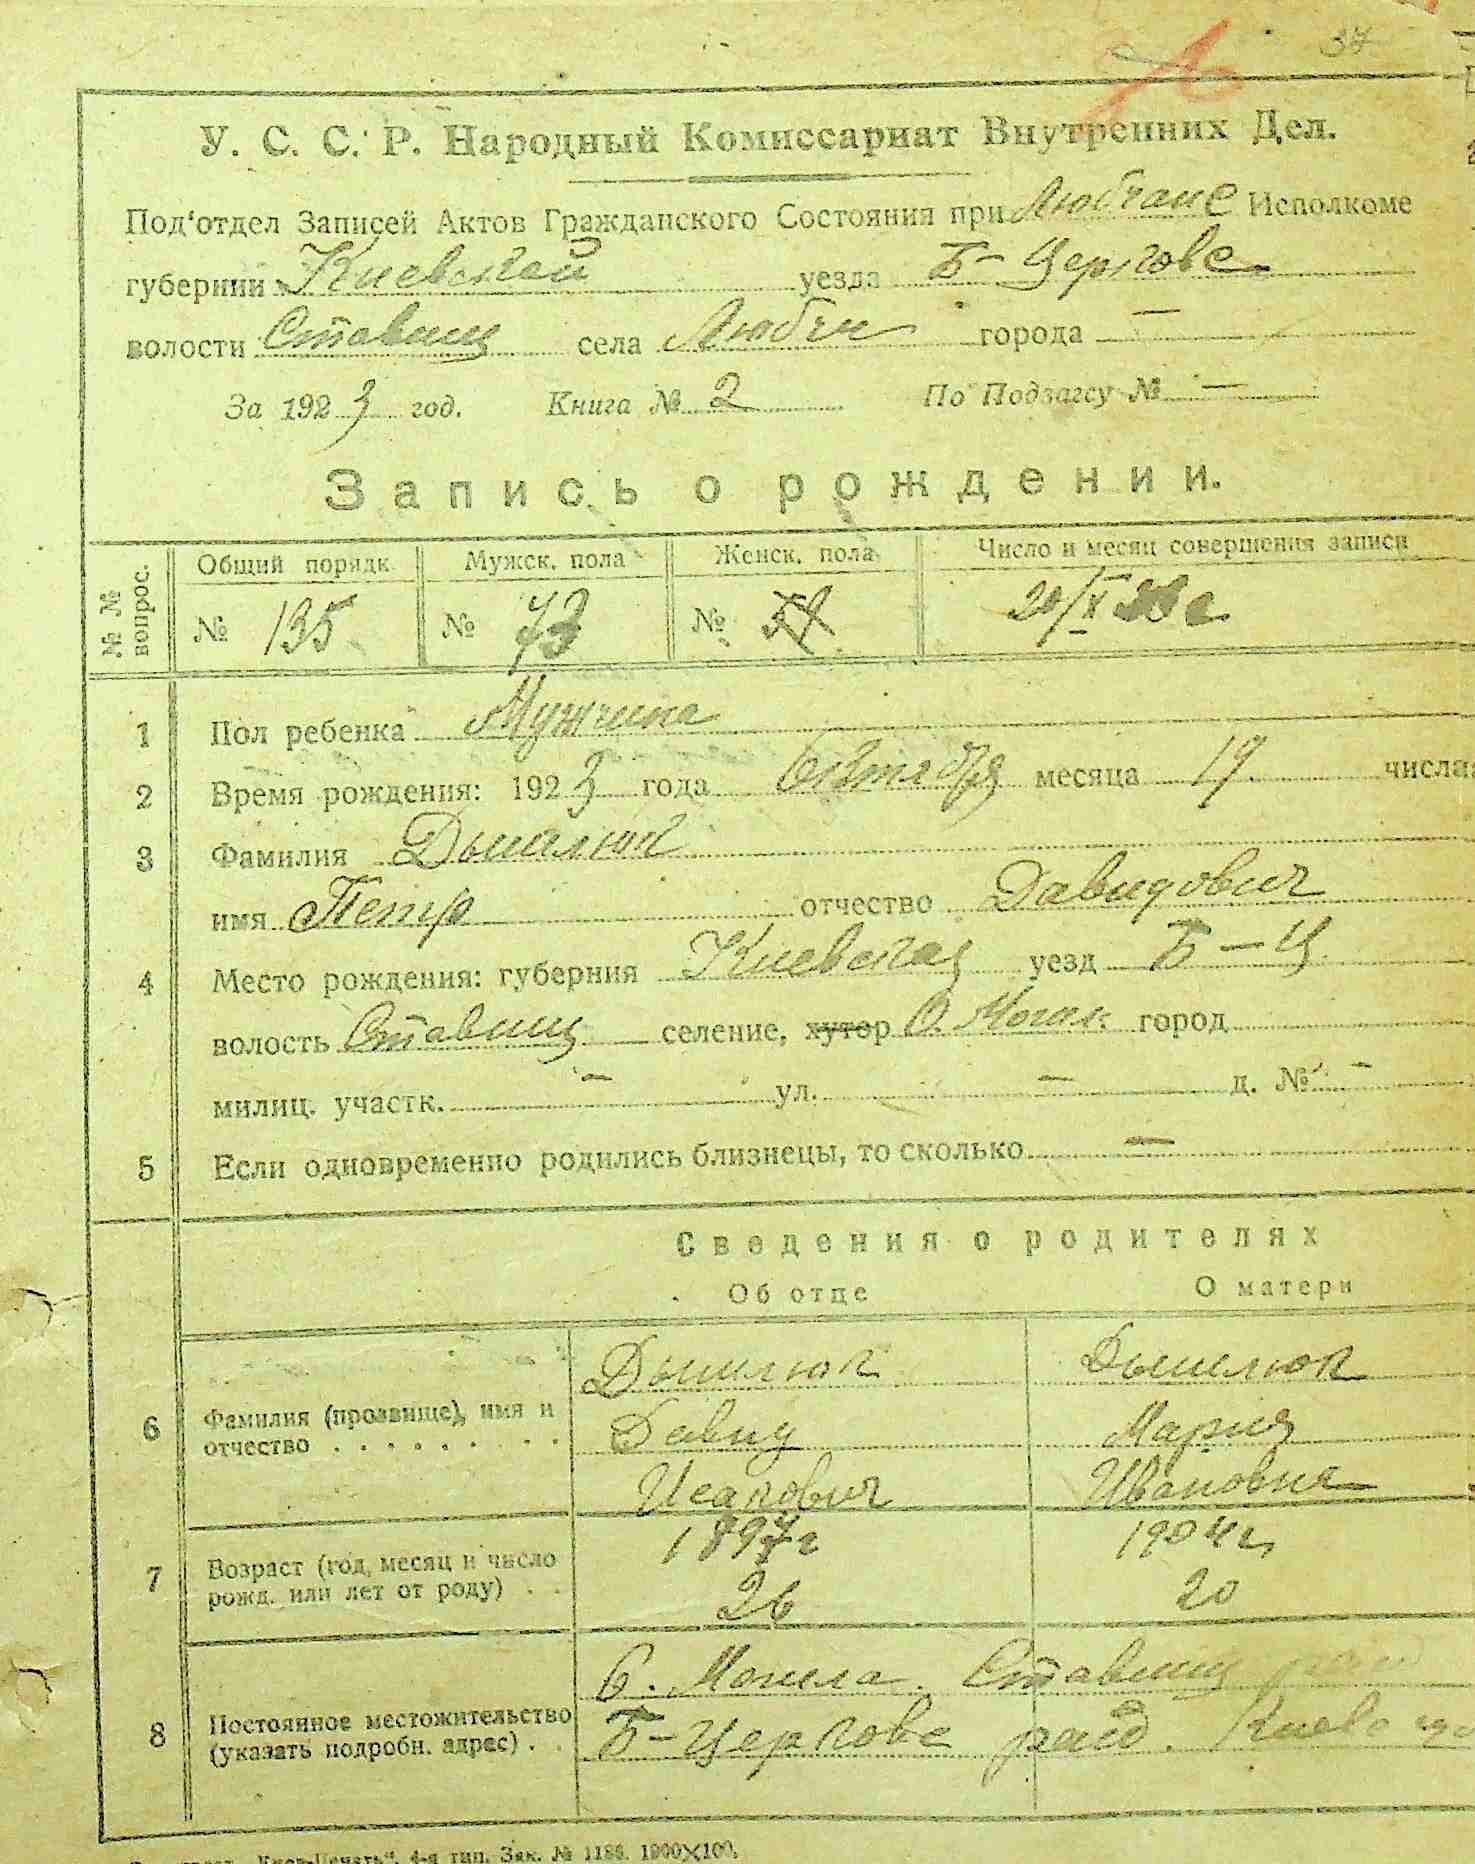 37
У. С. С. Р. Народный Комиссариат Внутренних Дел.
Под'отдел Записей Актов Гражданского Состояния при Любчане Исполкоме
губернии Киевской уезда Б-Церкове
волости Ставищ села Любчи города —
За 1923 год. Книга № 2 По Подзагсу № —
Запись о рождении.
№ № вопрос.
Общий порядк. Мужск. пола Женск. пола Число и месяц совершения записи
№ 135 № 73 № 20/X 23 г
1 Пол ребенка Мужчина
2 Время рождения: 1923 года Октября месяца 19 числа
3 Фамилия Дышлюк
имя Петр отчество Давидович
4 Место рождения: губерния Киевская уезд Б-Ц
волость Ставищ селение, хутор С. Могил. город
милиц. участк. — ул. — д. № —
5 Если одновременно родились близнецы, то сколько —
Сведения о родителях
Об отце О матери
Дышлюк Дышлюк
6 Фамилия (прозвище), имя и Давид Мария
отчество Исакович Ивановна
7 Возраст (год, месяц и число 1897 г 1904 г
рожд. или лет от роду) 26 20
С. Могила. Ставищ
8 Постоянное местожительство
(указать подробн. адрес) Б-Церкове
4-я тип. Зак. № 1186. 1000×100.